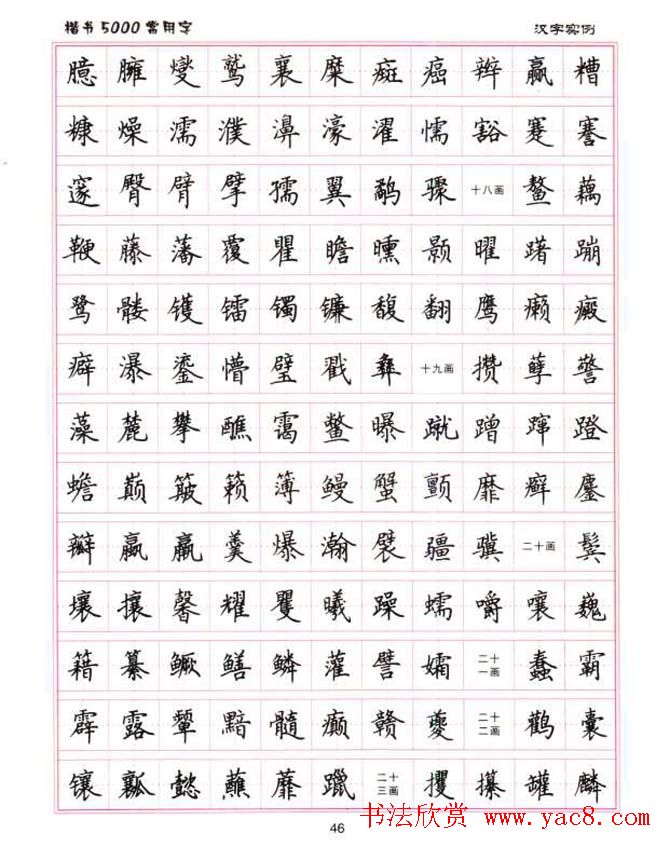 楷书5000常用字 汉字实例
臆 臃 燮 鹫 襄 糜 癍 癌 辫 赢 糟
糠 燥 濡 濮 濞 濠 濯 懦 豁 蹇 謇
邃 臀 臂 擘 孺 翼 鹬 骤 十八画 鳌 藕
鞭 藤 藩 覆 瞿 瞻 曛 颢 曜 躇 蹦
鹭 髅 镬 镭 镯 镰 馥 翻 鹰 癞 癜
癖 瀑 鎏 懵 璧 戳 彝 十九画 攒 孽 警
藻 麓 攀 醮 霭 鳖 曝 蹴 蹭 蹿 蹬
蟾 巅 簸 籁 簿 鳗 蟹 颤 靡 癣 鏖
瓣 羸 羹 爆 瀚 襞 疆 骥 二十画 鬓
壤 攘 馨 耀 矍 曦 躁 蠕 嚼 嚷 巍
籍 纂 鳜 鳝 鳞 灌 譬 孀 二十一画 蠢 霸
霹 露 颦 黯 髓 癫 赣 夔 二十二画 鹳 囊
镶 瓤 懿 蘸 蘼 躐 二十三画 攫 攥 罐 麟
46
书法欣赏 www.yac8.com